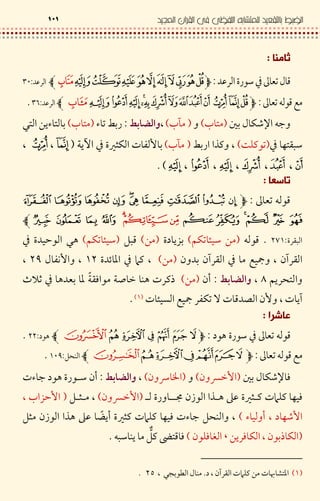 الضبط بالتقعيد للمتشابه اللفظي في القرآن المجيد ١٠١
ثامنا :
قال تعالى في سورة الرعد : ﴿ قُلْ هُوَ رَبِّي لَا إِلَٰهَ إِلَّا هُوَ عَلَيْهِ تَوَكَّلْتُ وَإِلَيْهِ مَتَابِ ﴾ الرعد: ٣٠
مع قوله تعالى : ﴿ قُلْ إِنَّمَا أُمِرْتُ أَنْ أَعْبُدَ اللَّهَ وَلَا أُشْرِكَ بِهِ إِلَيْهِ أَدْعُو وَإِلَيْهِ مَآبِ ﴾ الرعد: ٣٦ .
وجه الإشكال بين (متاب) و ( مآب) ،والضابط : ربط تاء (متاب) بالتاءين التي
سبقتها في(توكلت) ، وكذا اربط ( مآب) بالألفات الكثيرة في الآية ( إِنَّمَا ، أُمِرْتُ ،
أَنْ ، أَعْبُدَ ، أُشْرِكَ ، إِلَيْهِ ، أَدْعُو ، إِلَيْهِ ) .
تاسعا :
قوله تعالى : ﴿ إِن تُبْدُوا الصَّدَقَاتِ فَنِعِمَّا هِيَ وَإِن تُخْفُوهَا وَتُؤْتُوهَا الْفُقَرَاءَ
فَهُوَ خَيْرٌ لَّكُمْ وَيُكَفِّرُ عَنكُم مِّن سَيِّئَاتِكُمْ وَاللَّهُ بِمَا تَعْمَلُونَ خَبِيرٌ ﴾
البقرة: ٢٧١ . قوله (من سيئاتكم) بزيادة (من) قبل (سيئاتكم) هي الوحيدة في
القرآن ، وجميع ما في القرآن بدون (من) ، كما في المائدة ١٢ ، والأنفال ٢٩ ،
والتحريم ٨ ، والضابط : أن (من) ذكرت هنا خاصة موافقةً لما بعدها في ثلاث
آيات ، ولأن الصدقات لا تكفر جميع السيئات (١).
عاشرا :
قوله تعالى في سورة هود : ﴿ لَا جَرَمَ أَنَّهُمْ فِي الْآخِرَةِ هُمُ الْأَخْسَرُونَ ﴾ هود: ٢٢ .
مع قوله تعالى : ﴿ لَا جَرَمَ أَنَّهُمْ فِي الْآخِرَةِ هُمُ الْخَاسِرُونَ ﴾ النحل: ١٠٩ .
فالإشكال بين (الأخسرون) و (الخاسرون) ، والضابط : أن سورة هود جاءت
فيها كلمات كثيرة على هذا الوزن مجاورة لـ (الأخسرون) ، مثل ( الأحزاب ،
الأشهاد ، أولياء ) ، والنحل جاءت فيها كلمات كثيرة أيضًا على هذا الوزن مثل
(الكاذبون ، الكافرين ، الغافلون ) فاقتضى كلٌ ما يناسبه .
(١) المتشابهات من كلمات القرآن ، د. منال الطوبجي ، ٢٥ .